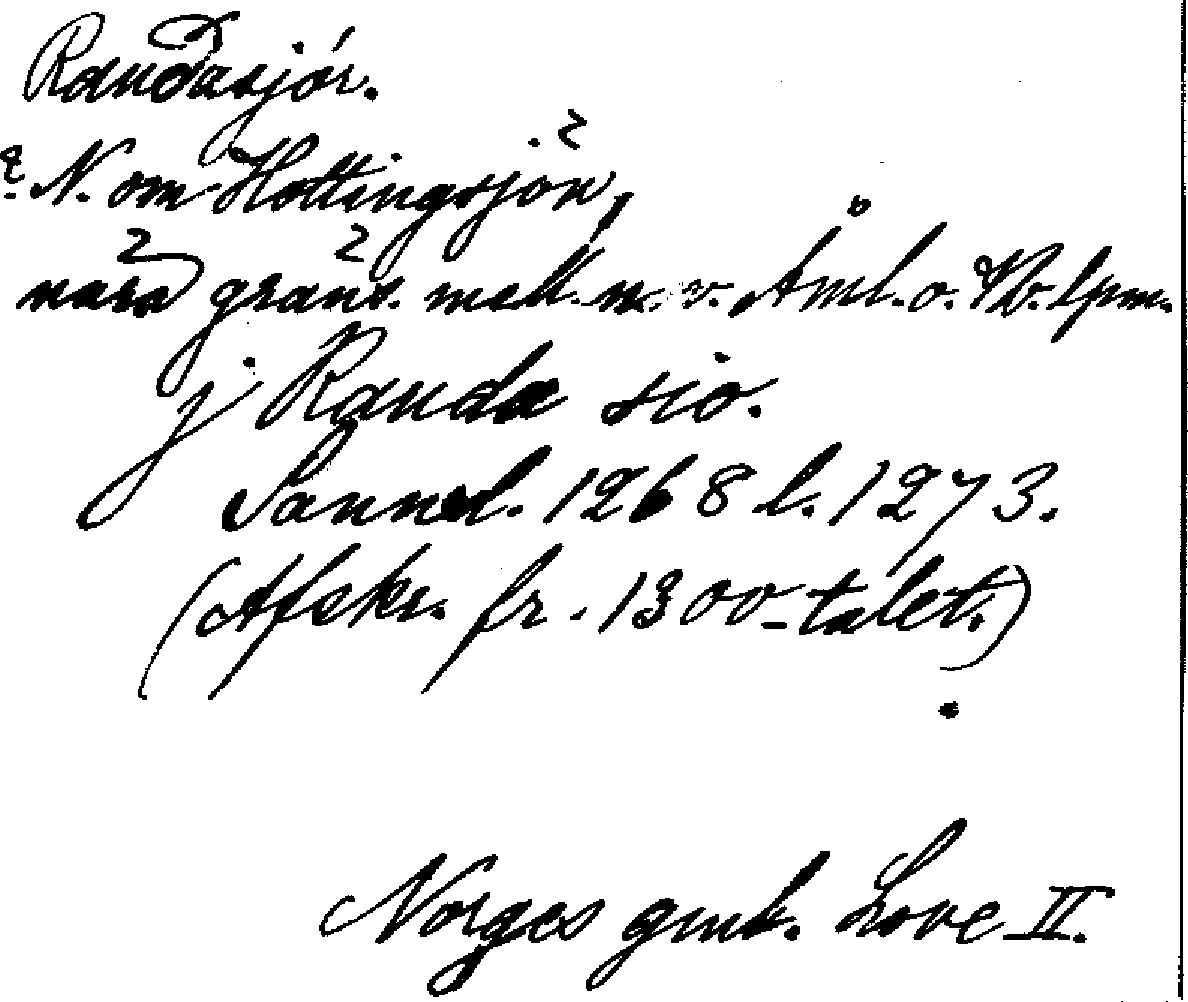 Rauðasjór.
? N. om Hottingsjön,
nära gräns. mell. n. v. Åml. o. Vb. lpm.
j Rauda sio.
Sannol. 1268 l. 1273.
(Afskr. fr. 1300-talet.)
Norges gml. Love II.